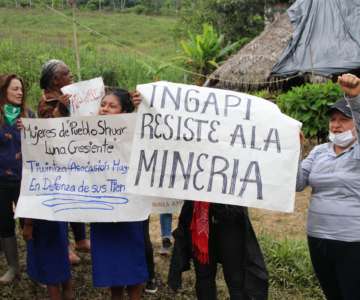 Mujeres de Pueblo Shuar
Luna Creciente
Tiwintza Asociación Muj
En Defensa de sus Terr
INGAPI
RESISTE A LA
MINERIA
NUNCA